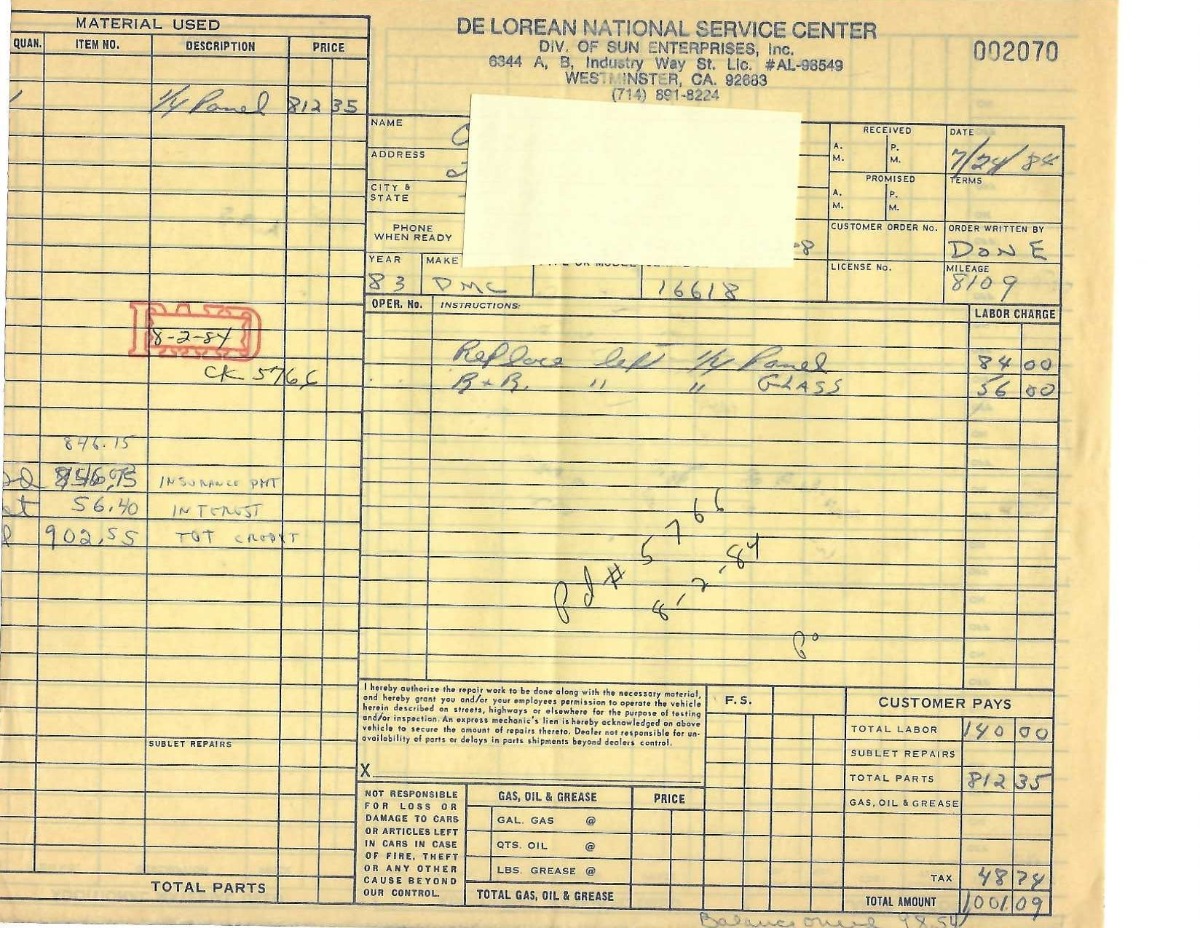 MATERIAL USED
QUAN. ITEM NO. DESCRIPTION PRICE
1 1/4 Panel 812 35
PAID
8-2-84
CK 5766
846.15
INSURANCE PMT
56.40 INTERUST
902.55 TOT CREDIT
SUBLET REPAIRS
TOTAL PARTS
DE LOREAN NATIONAL SERVICE CENTER
DIV. OF SUN ENTERPRISES, Inc.
6344 A, B, Industry Way St. Lic. #AL-98549
WESTMINSTER, CA. 92683
(714) 891-8224
002070
NAME
ADDRESS
CITY & STATE
PHONE WHEN READY
RECEIVED
A. M. P. M.
PROMISED
A. M. P. M.
DATE
7/24/84
TERMS
CUSTOMER ORDER No.
ORDER WRITTEN BY
DON E
LICENSE No.
MILEAGE
8109
YEAR MAKE
83 DMC 16618
OPER. No. INSTRUCTIONS: LABOR CHARGE
Replace left 1/4 Panel 84 00
R+R. " " GLASS 56 00
Pd # 5766
8-2-84
I hereby authorize the repair work to be done along with the necessary material,
and hereby grant you and/or your employees permission to operate the vehicle
herein described on streets, highways or elsewhere for the purpose of testing
and/or inspection. An express mechanic's lien is hereby acknowledged on above
vehicle to secure the amount of repairs thereto. Dealer not responsible for un-
availability of parts or delays in parts shipments beyond dealers control.
X
NOT RESPONSIBLE
FOR LOSS OR
DAMAGE TO CARS
OR ARTICLES LEFT
IN CARS IN CASE
OF FIRE, THEFT
OR ANY OTHER
CAUSE BEYOND
OUR CONTROL.
GAS, OIL & GREASE PRICE
GAL. GAS @
QTS. OIL @
LBS. GREASE @
TOTAL GAS, OIL & GREASE
F.S.
CUSTOMER PAYS
TOTAL LABOR 140 00
SUBLET REPAIRS
TOTAL PARTS 812 35
GAS, OIL & GREASE
TAX 48 74
TOTAL AMOUNT 1001.09
Balance 98.54